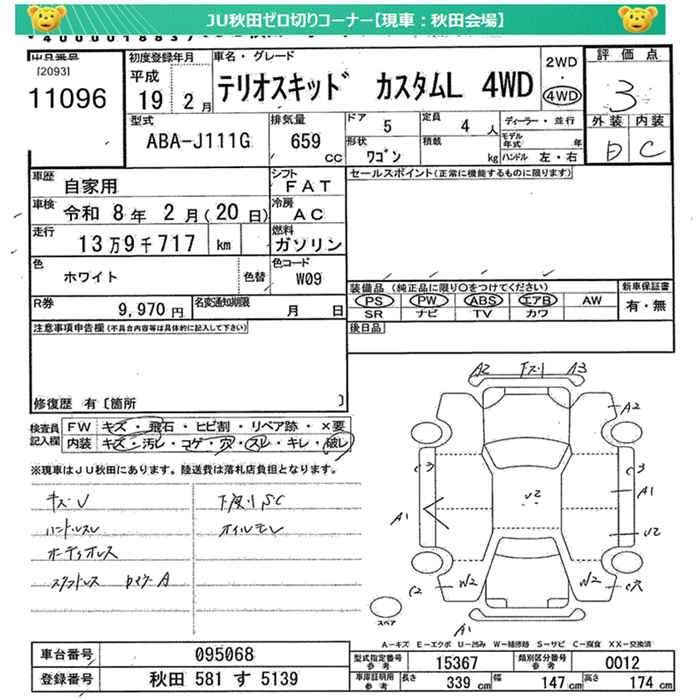 JU秋田ゼロ切りコーナー【現車：秋田会場】
出品番号
[2093]
11096
初度登録年月
平成
19 年 2 月
車名・グレード
テリオスキッド カスタムL 4WD
2WD
・
4WD
評価点
3
外装 内装
D C
型式
ABA-J111G
排気量
659 CC
ドア 5
定員 4 人
形状 ワゴン
積載 kg
ディーラー・並行
モデル年式 年
ハンドル 左・右
車歴
自家用
シフト
FAT
車検 令和 8年 2月(20日)
冷房
AC
走行 13万9千717 km
燃料
ガソリン
色
ホワイト
色替
色コード
W09
R券
9,970 円
名変通知期限
月 日
セールスポイント(正常に機能するものに限ります)
装備品 (純正品に限り○をつけてください)
PS PW ABS エアB AW
SR ナビ TV カワ
新車保証書
有・無
後日品
注意事項申告欄(不具合内容等は具体的に記入して下さい)
修復歴 有〔箇所 〕
検査員記入欄
FW キズ・飛石・ヒビ割・リペア跡・×要
内装 キズ・汚レ・コゲ・穴・スレ・キレ・破レ
※現車はJU秋田にあります。陸送費は落札店負担となります。
キズU
ハンドルスレ
オーディオレス
スタフトレス
下廻りSC
オイルモレ
A2 下スリ A3
A2
A1
A1
U2
U2
W2
W2
C2
C穴
A1
スペア
A－キズ E－エクボ U－凹み W－補修跡 S－サビ C－腐食 XX－交換済
車台番号 095068
登録番号 秋田 581 す 5139
型式指定番号 参考 15367
類別区分番号 参考 0012
車庫証明用 参考 長さ 339 cm 幅 147 cm 高さ 174 cm